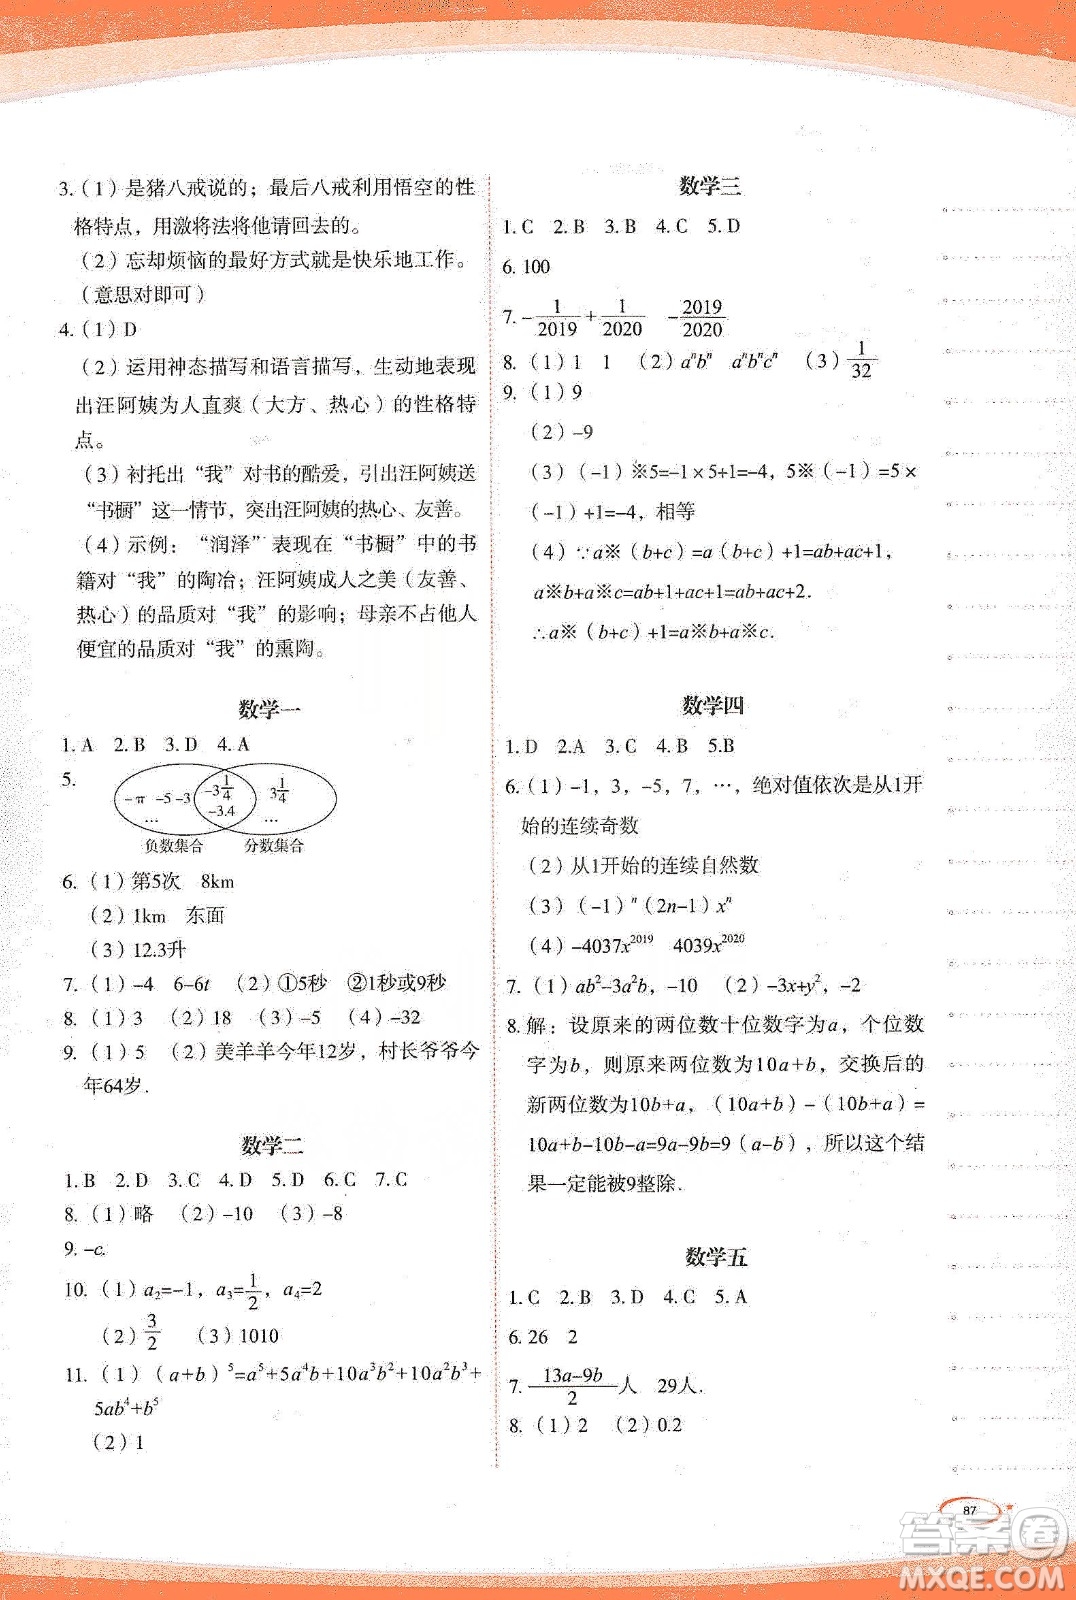 3.（1）是猪八戒说的；最后八戒利用悟空的性
格特点，用激将法将他请回去的。
（2）忘却烦恼的最好方式就是快乐地工作。
（意思对即可）
4.（1）D
（2）运用神态描写和语言描写，生动地表现
出汪阿姨为人直爽（大方、热心）的性格特
点。
（3）衬托出“我”对书的酷爱，引出汪阿姨送
“书橱”这一情节，突出汪阿姨的热心、友善。
（4）示例：“润泽”表现在“书橱”中的书
籍对“我”的陶冶；汪阿姨成人之美（友善、
热心）的品质对“我”的影响；母亲不占他人
便宜的品质对“我”的熏陶。
数学一
1. A 2. B 3. D 4. A
5.
-π -5 -3 … -3 1/4 -3.4 3 1/4 …
负数集合 分数集合
6.（1）第5次 8km
（2）1km 东面
（3）12.3升
7.（1）-4 6-6t （2）①5秒 ②1秒或9秒
8.（1）3 （2）18 （3）-5 （4）-32
9.（1）5 （2）美羊羊今年12岁，村长爷爷今
年64岁.
数学二
1. B 2. D 3. C 4. D 5. D 6. C 7. C
8.（1）略 （2）-10 （3）-8
9. -c.
10.（1）a₂=-1，a₃=1/2，a₄=2
（2）3/2 （3）1010
11.（1）（a+b）⁵=a⁵+5a⁴b+10a³b²+10a²b³+
5ab⁴+b⁵
（2）1
数学三
1. C 2. B 3. B 4. C 5. D
6. 100
7. -1/2019+1/2020 -2019/2020
8.（1）1 1 （2）aⁿbⁿ aⁿbⁿcⁿ （3）1/32
9.（1）9
（2）-9
（3）（-1）※5=-1×5+1=-4，5※（-1）=5×
（-1）+1=-4，相等
（4）∵a※（b+c）=a（b+c）+1=ab+ac+1，
a※b+a※c=ab+1+ac+1=ab+ac+2.
∴a※（b+c）+1=a※b+a※c.
数学四
1. D 2.A 3. C 4. B 5.B
6.（1）-1，3，-5，7，…，绝对值依次是从1开
始的连续奇数
（2）从1开始的连续自然数
（3）（-1）ⁿ（2n-1）xⁿ
（4）-4037x²⁰¹⁹ 4039x²⁰²⁰
7.（1）ab²-3a²b，-10 （2）-3x+y²，-2
8. 解：设原来的两位数十位数字为a，个位数
字为b，则原来两位数为10a+b，交换后的
新两位数为10b+a，（10a+b）-（10b+a）=
10a+b-10b-a=9a-9b=9（a-b），所以这个结
果一定能被9整除.
数学五
1. C 2. B 3. D 4. C 5. A
6. 26 2
7. 13a-9b/2人 29人.
8.（1）2 （2）0.2
87
答案圈
MXQE.COM